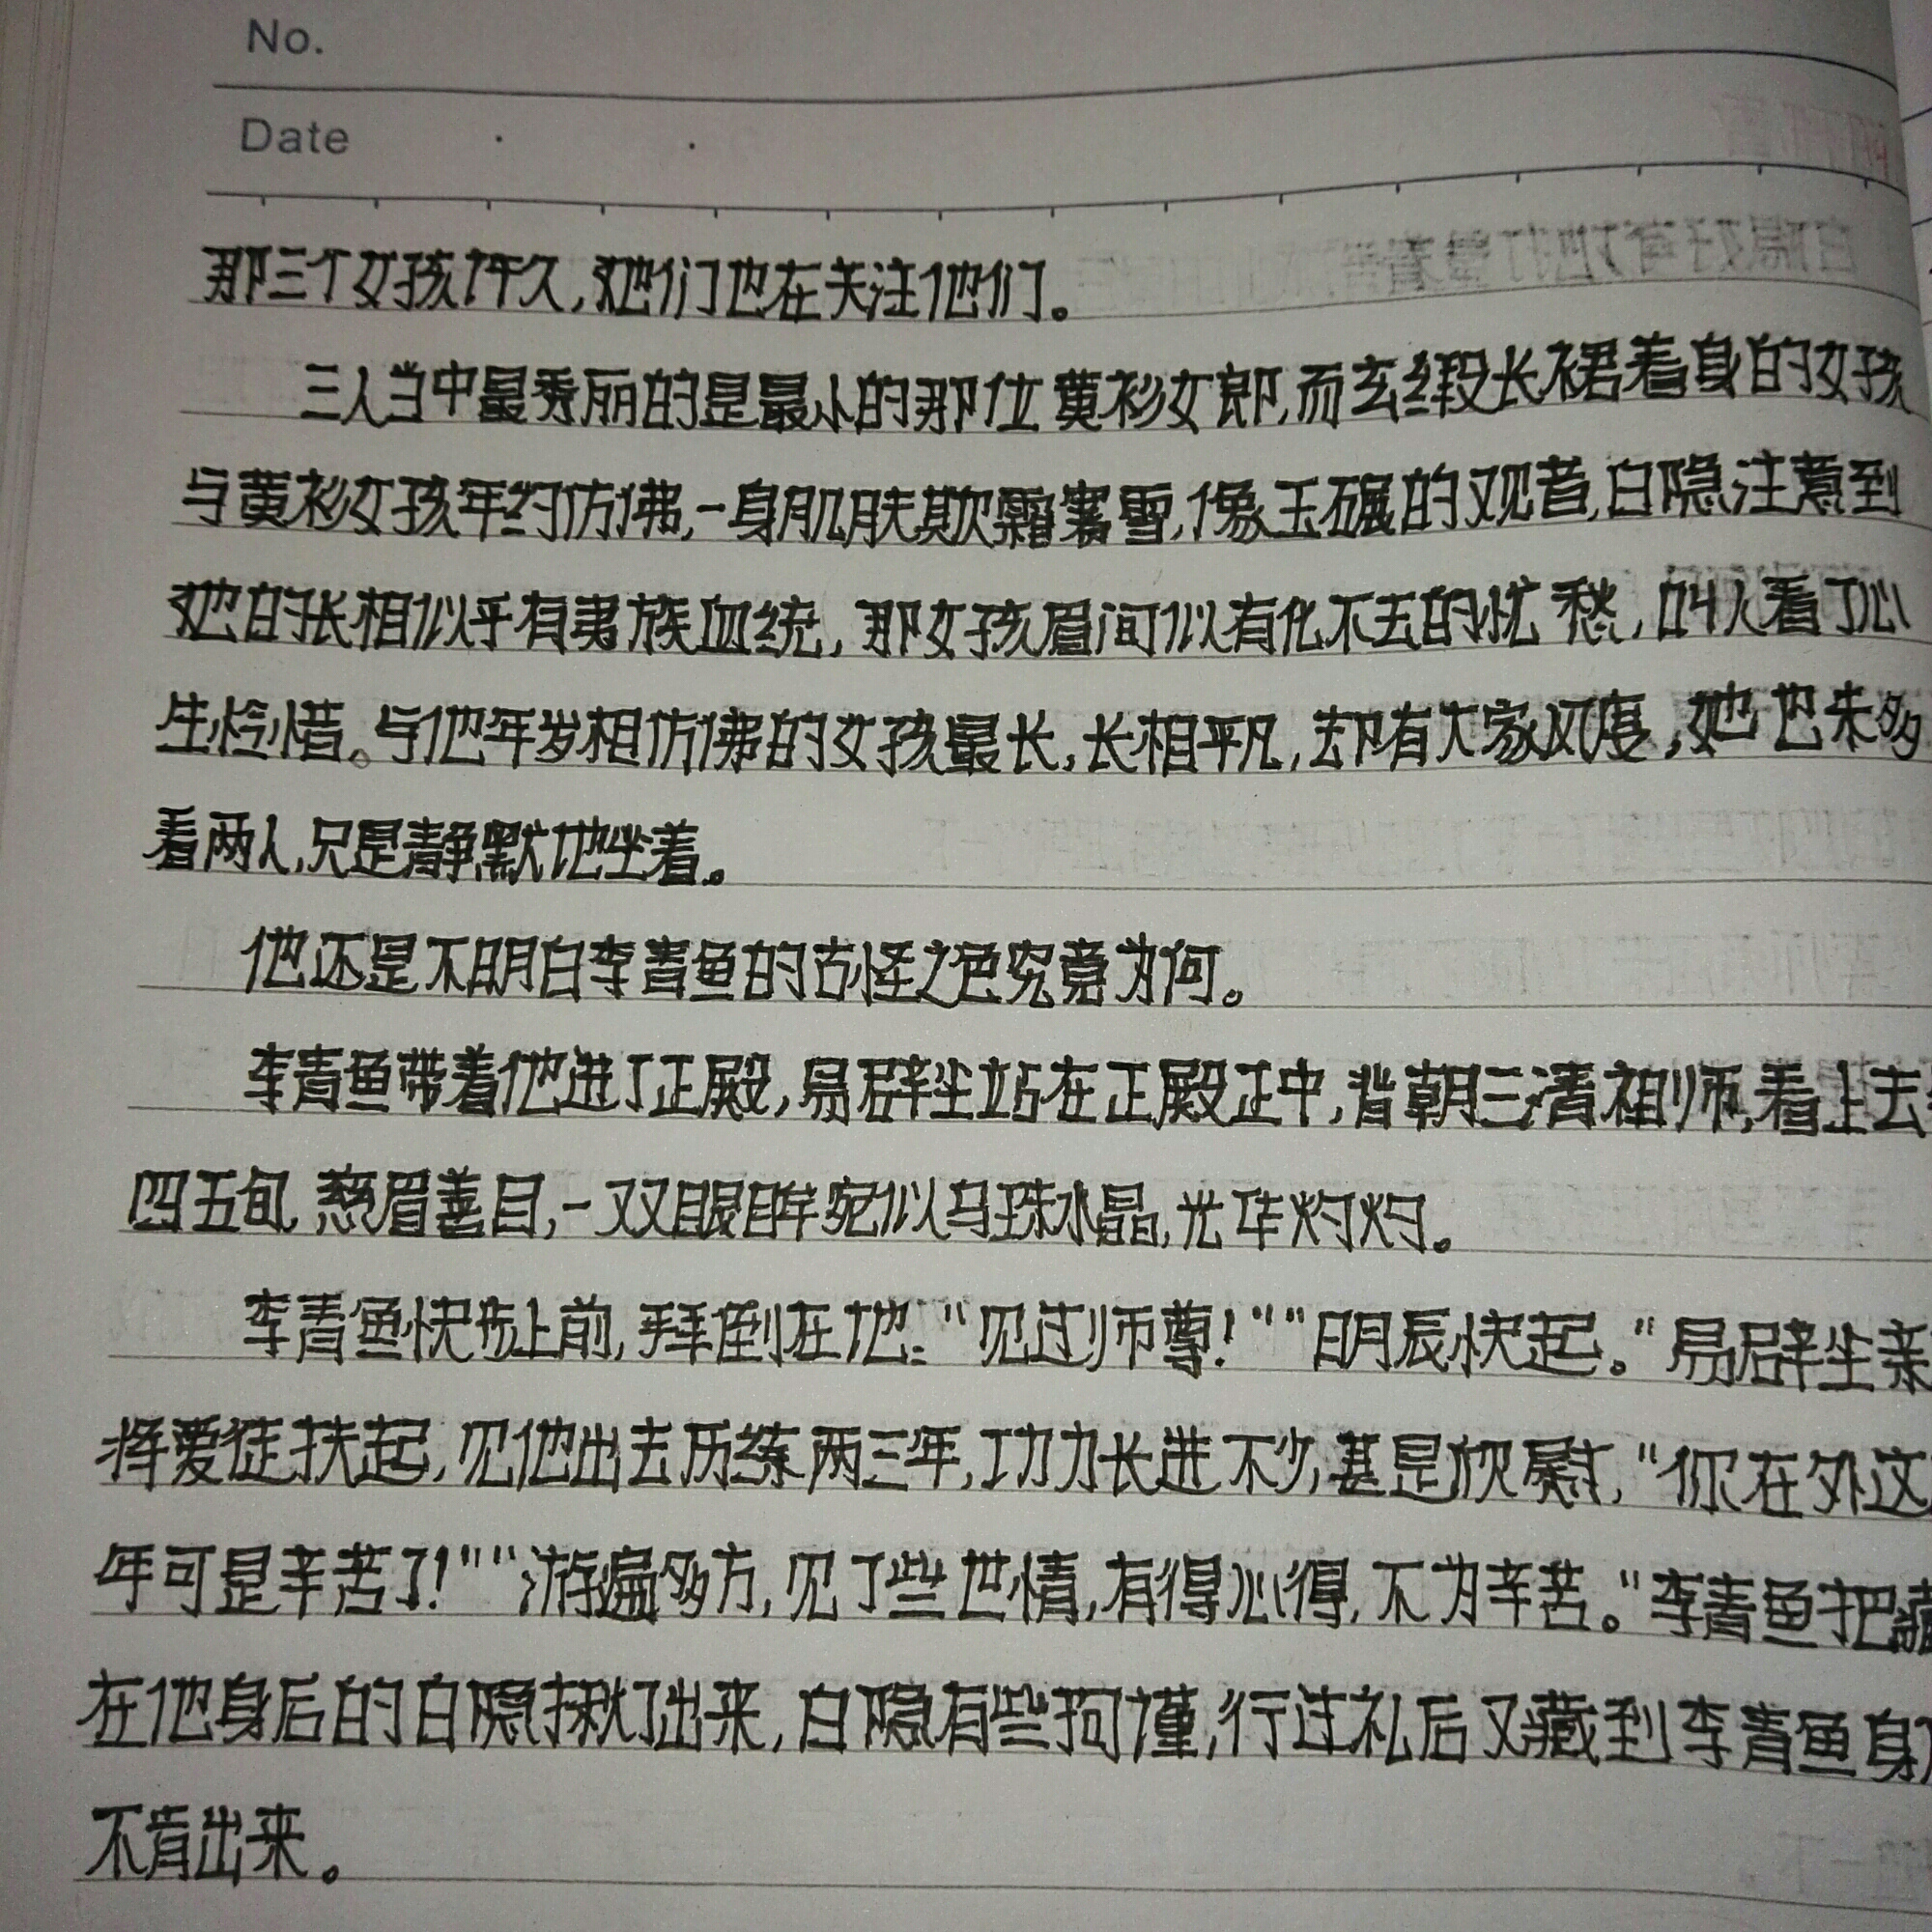 No.
Date
那三个女孩许久,她们也在关注他们。
三人当中最秀丽的是最小的那位黄衫女郎,而玄缎长裙着身的女孩
与黄衫女孩年约仿佛,一身肌肤欺霜赛雪,像玉碾的观音,白隐注意到
她的长相似乎有夷族血统,那女孩眉间似有化不去的忧愁,叫人看了心
生怜惜。与他年岁相仿佛的女孩最长,长相平凡,却有大家风度,她也未多
看两人,只是静默地坐着。
他还是不明白李青鱼的古怪之色究竟为何。
李青鱼带着他进了正殿,易辟尘站在正殿正中,背朝三清祖师,看上去
四五旬,慈眉善目,一双眼眸宛似乌珠水晶,光华灼灼。
李青鱼快步上前,拜倒在地:“见过师尊!”“明辰快起。”易辟尘亲
将爱徒扶起,见他出去历练两三年,功力长进不少,甚是欣慰,“你在外这
年可是辛苦了!”“游遍多方,见了些世情,有得心得,不为辛苦。”李青鱼把藏
在他身后的白隐揪了出来,白隐有些拘谨,行过礼后又藏到李青鱼身
不肯出来。